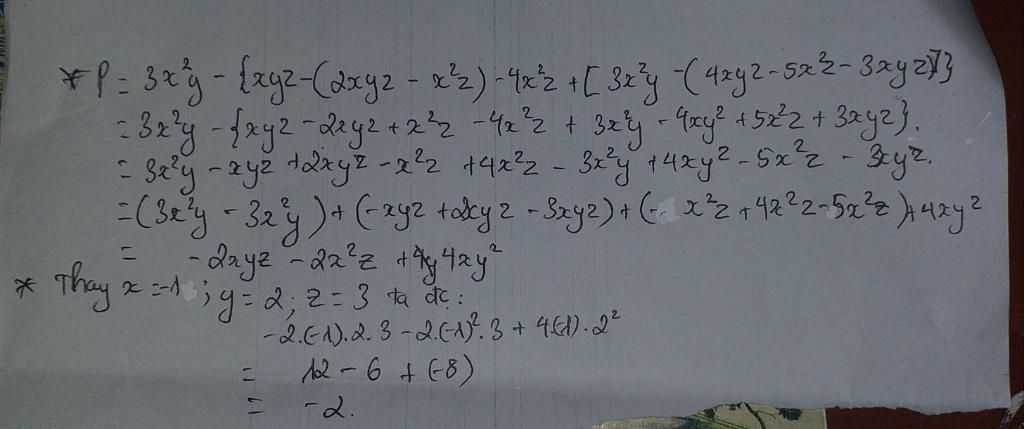 * P = 3x²y - {xyz - (2xyz - x²z) - 4x²z + [3x²y - (4xyz - 5x²z - 3xyz)]}
= 3x²y - {xyz - 2xyz + x²z - 4x²z + 3x²y - 4xy² + 5x²z + 3xyz}.
= 3x²y - xyz + 2xyz - x²z + 4x²z - 3x²y + 4xy² - 5x²z - 3xyz.
= (3x²y - 3x²y) + (-xyz + 2xyz - 3xyz) + (- x²z + 4x²z - 5x²z) + 4xy²
= -2xyz - 2x²z + 4xy²
* Thay x = -1 ; y = 2 ; z = 3 ta đc :
-2.(-1).2.3 - 2.(-1)².3 + 4(-1).2²
= 12 - 6 + (-8)
= -2.